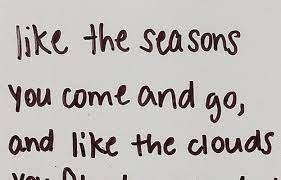 like the seasons
you come and go,
and like the clouds
you